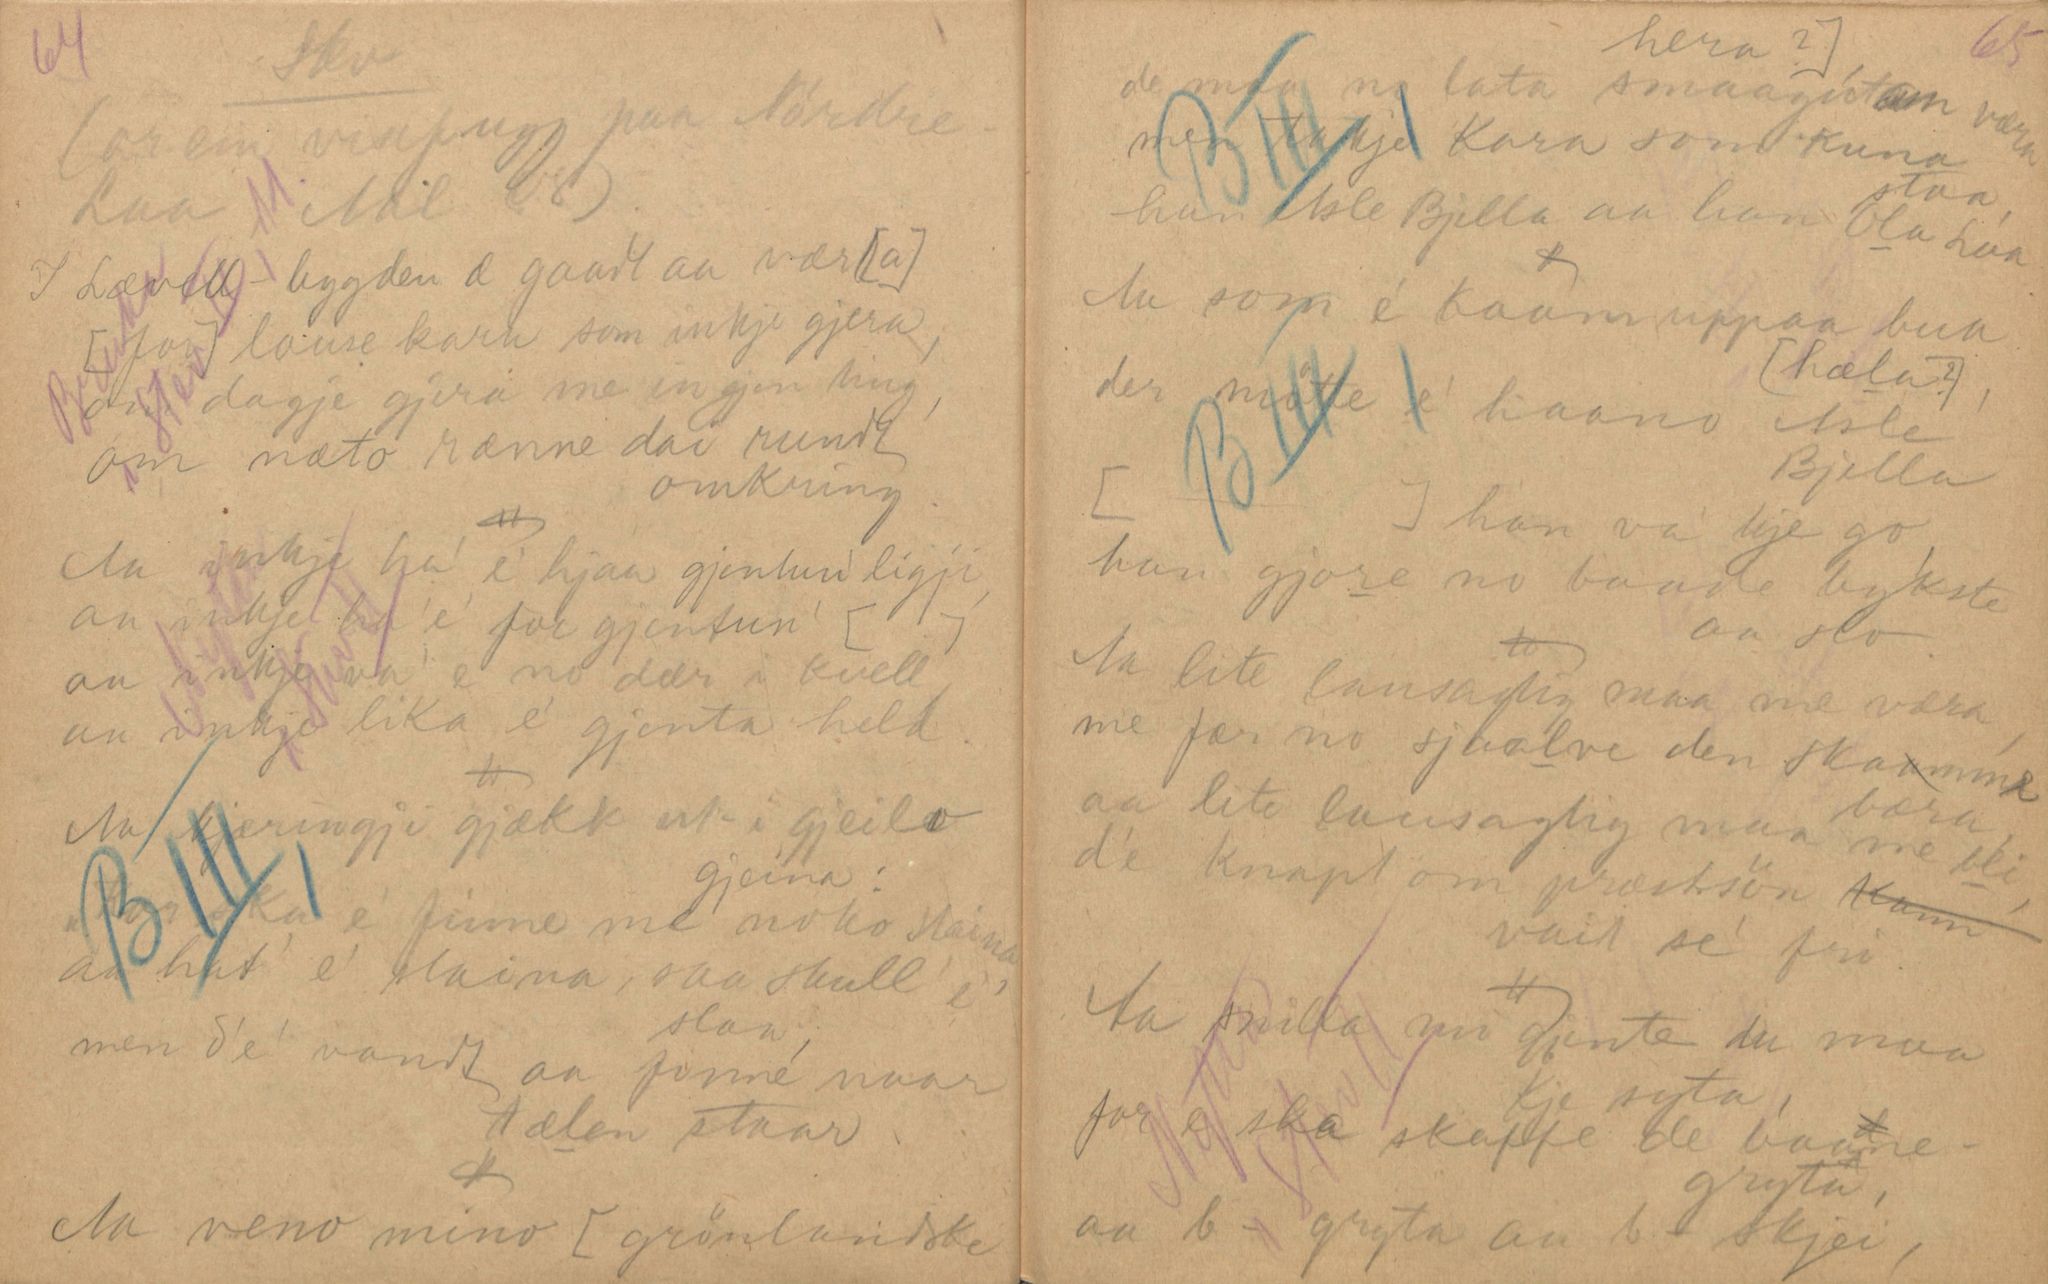 64
Stev
(or ein visepugg paa Nördre-
Laa Aal 08)
I Lævell-bygden æ gaadt aa vær[a]
[for] lause kara som inkje gjera,
om dagje gjera me ingjen ting,
om næto rænne dai rundt
omkring.
Aa inkje há é hjaa gjentun ligji,
aa inkje há é for gjentun [ ]
aa inkje vá é no dær i kvell
aa inkje lika é gjenta held.
Aa kjæringji gjækk ut i gjeilo
gjeina:
ska é finne me noko staina
aa hat é staina, saa skull é
slaa,
men d'é vandt aa finne naar
tælen staar.
Aa veno mino [grönlandske
B III 1
65
hera ?],
de maa no lata smaagutan væra
men takje kara som kuna
staa,
han Asle Bjella aa han Ola Laa
Aa som é kaam uppaa bua
[hæla ?],
der møtte é haano Asle
Bjella
[ ] han vá kje go,
han gjore no baade bykste
aa slo.
Aa lite lausagtig maa me væra,
me fær no sjaalve den skamme
bæra,
aa lite lausagtig maa me bli,
d'é knapt om præstsön
vait sé fri.
Aa snilla mi gjente du maa
kje syta,
for e ska skaffe de baane-
gryta,
aa b-gryta aa b-skjei,
B III 1
B III 1